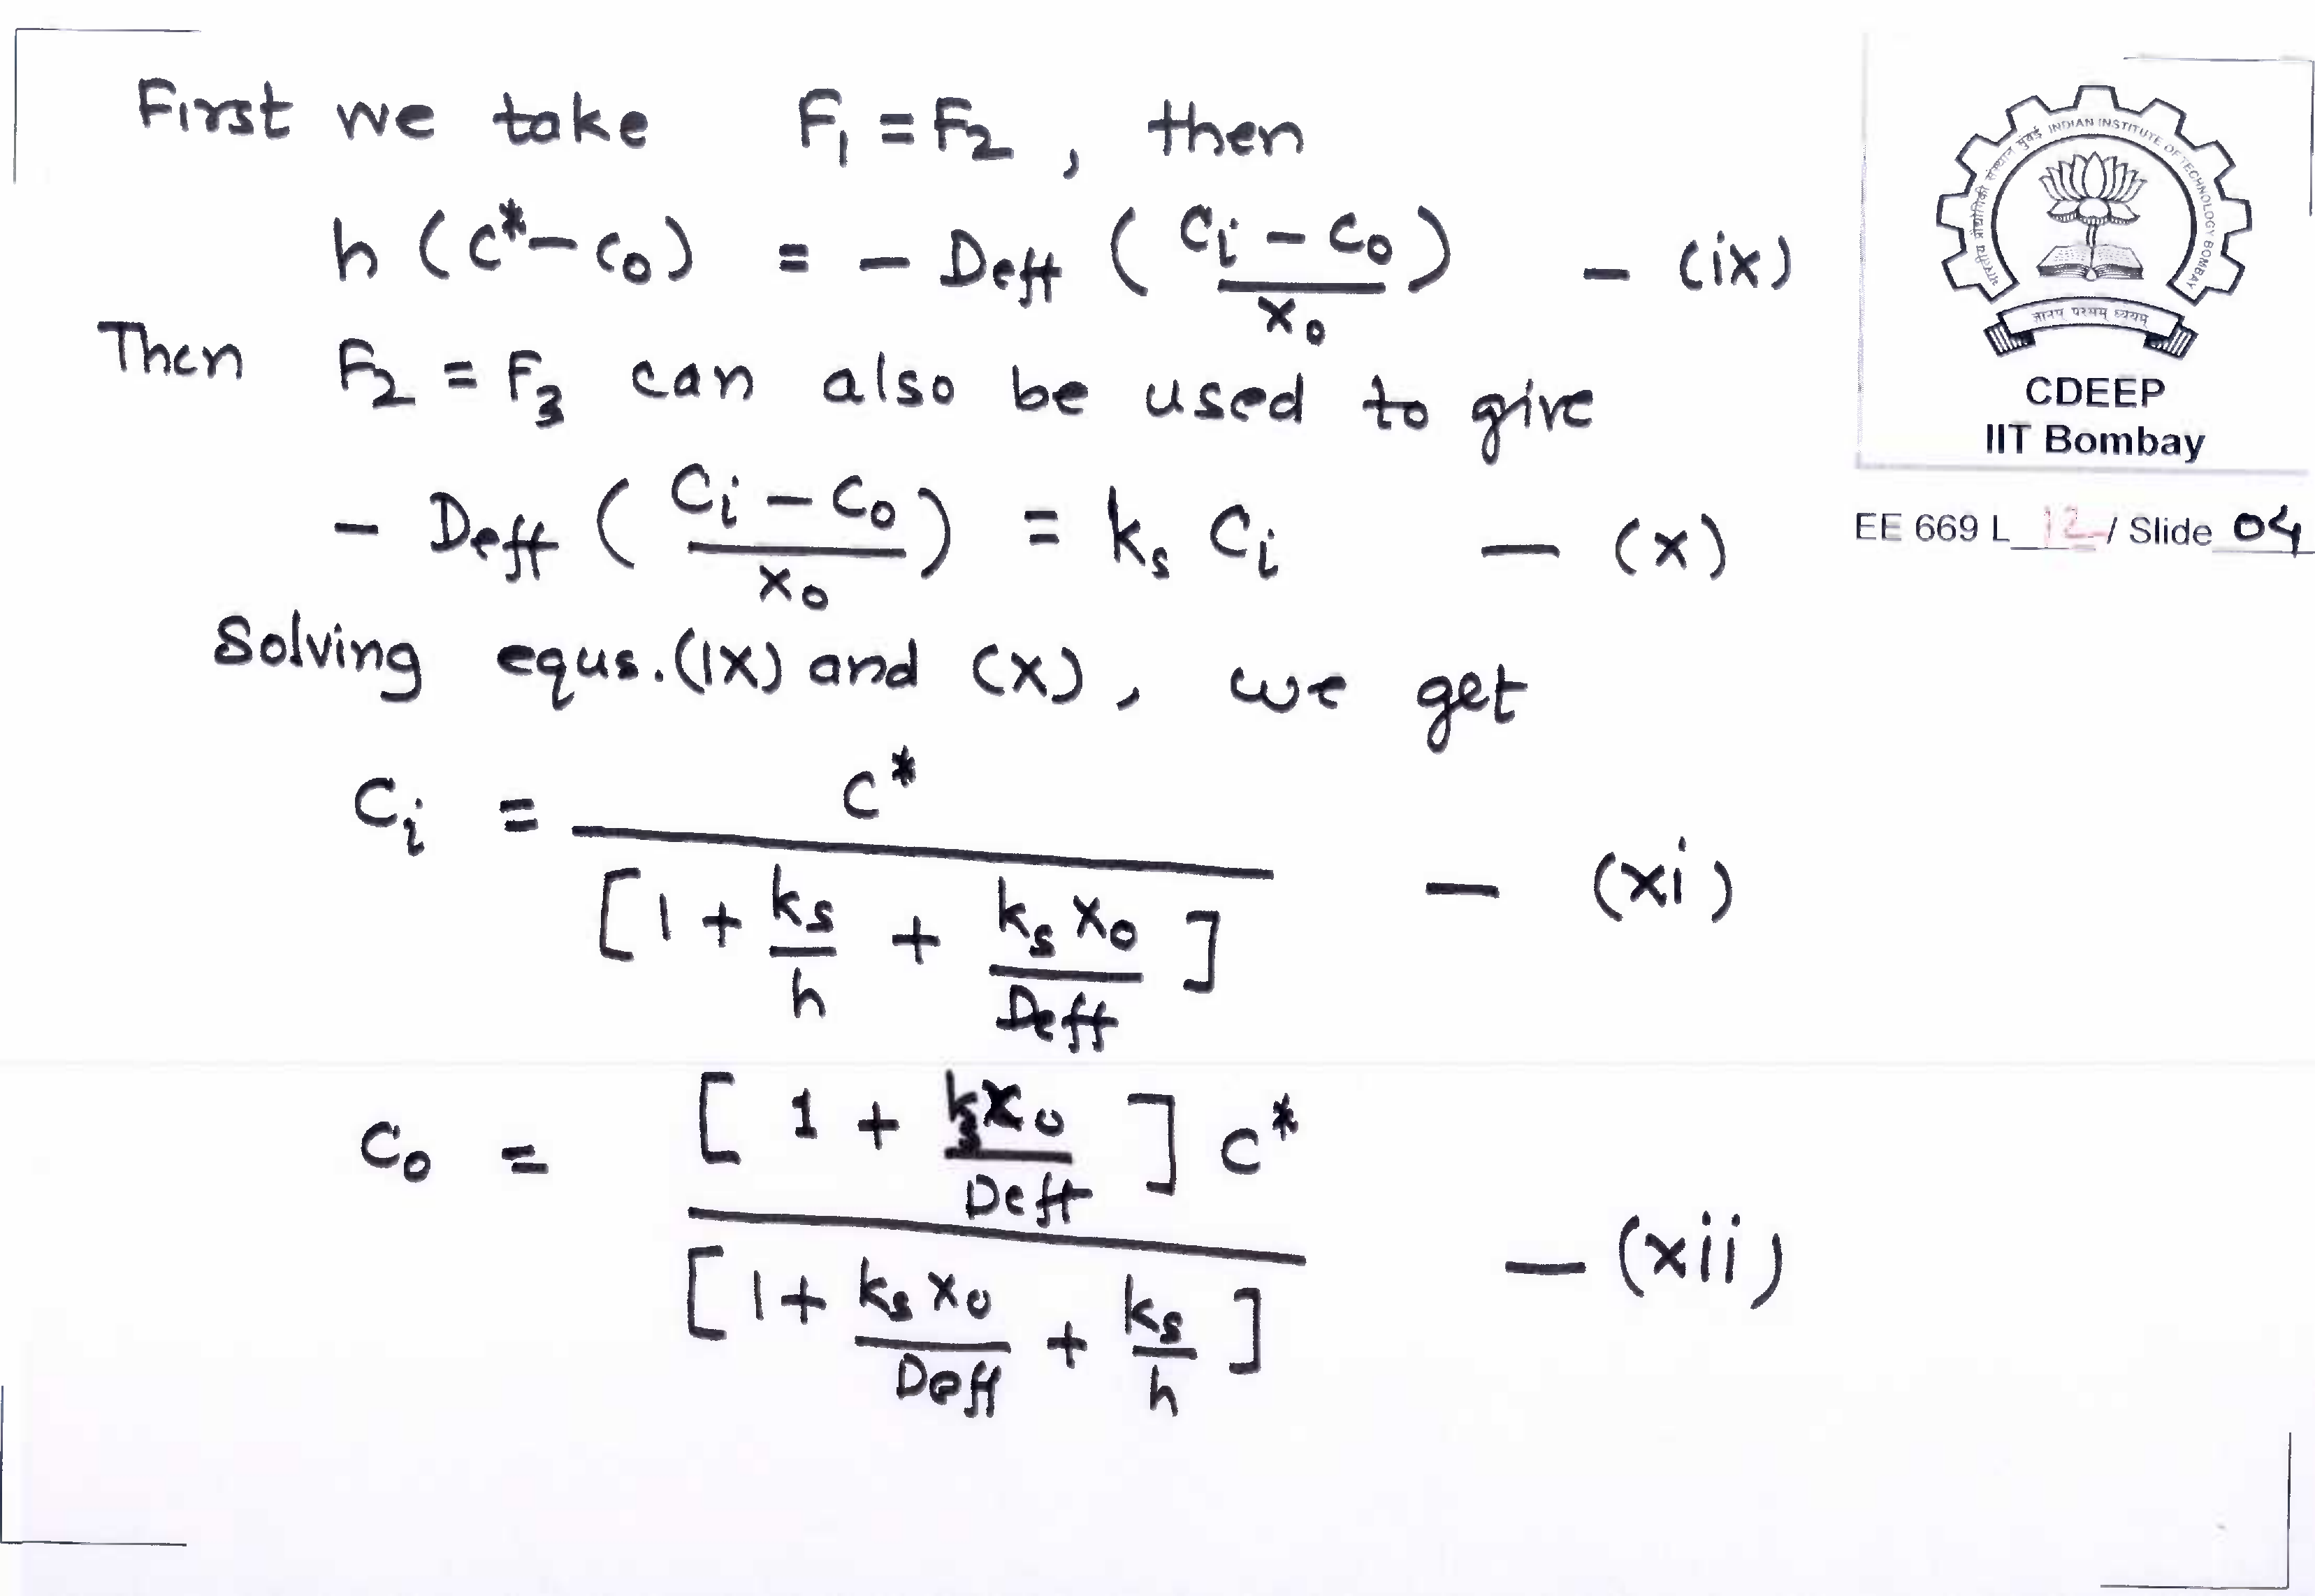 First we take F₁ = F₂ , then
h (C* - C₀) = - Deff ( (Ci - C₀) / x₀ ) - (ix)
Then F₂ = F₃ can also be used to give
- Deff ( (Ci - C₀) / x₀ ) = ks Ci - (x)
Solving equs. (IX) and (X), we get
Ci = C* / [ 1 + ks/h + ks x₀/Deff ] - (xi)
C₀ = [ 1 + ks x₀/Deff ] C* / [ 1 + ks x₀/Deff + ks/h ] - (xii)
भारतीय प्रौद्योगिकी संस्थान मुंबई INDIAN INSTITUTE OF TECHNOLOGY BOMBAY
CDEEP
IIT Bombay
EE 669 L 12 / Slide 04